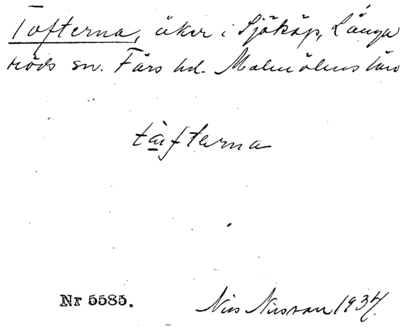 Tofterna, åker i Sjököp, Långa
röds sn. Färs hd. Malmöhus län
tåfterna
Nr 5585.
Nils Nilsson 1934.